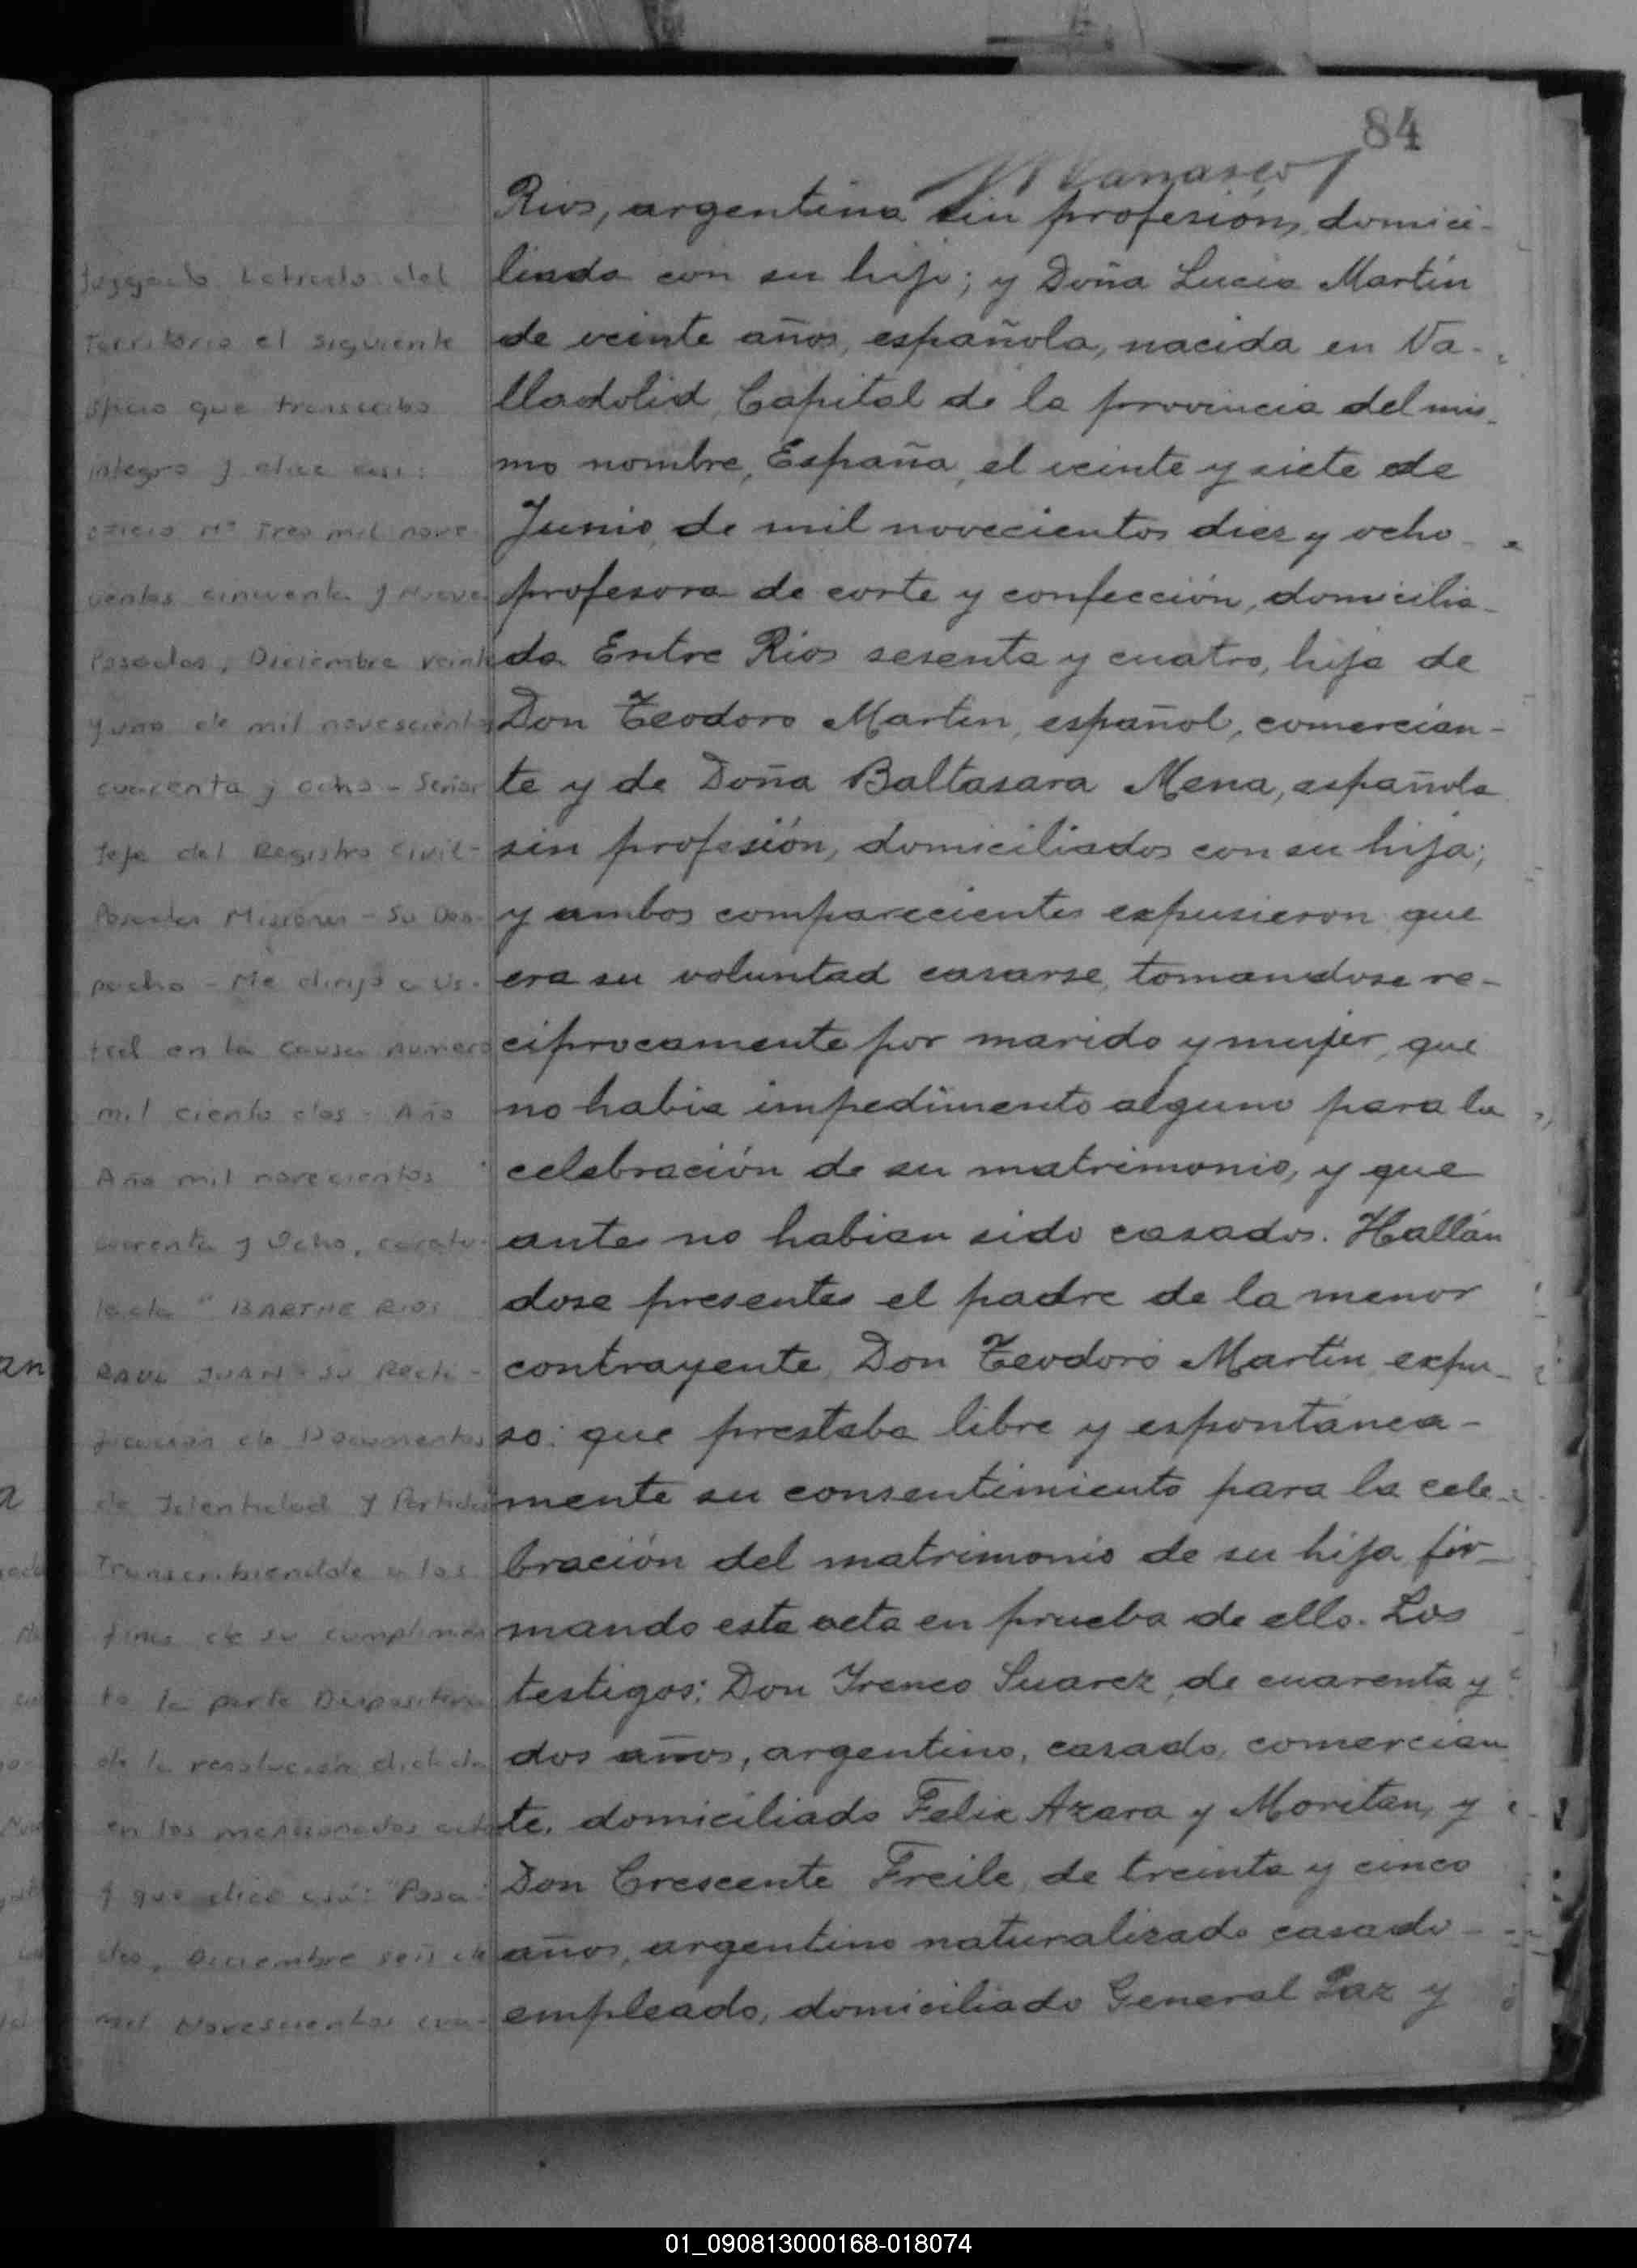 84
Rios, argentina sin profesión, domici-
liada con su hijo; y Doña Lucia Martín
de veinte años, española, nacida en Va-
lladolid, Capital de la provincia del mis-
mo nombre, España, el veinte y siete de
Junio de mil novecientos diez y ocho
profesora de corte y confección, domicilia-
da Entre Rios sesenta y cuatro, hija de
Don Teodoro Martin, español, comercian-
te y de Doña Baltasara Mena, española
sin profesión, domiciliados con su hija;
y ambos comparecientes expusieron que
era su voluntad casarse, tomandose re-
ciprocamente por marido y mujer, que
no habia impedimento alguno para la
celebración de su matrimonio, y que
antes no habian sido casados. Hallán
dose presentes el padre de la menor
contrayente, Don Teodoro Martín, expu-
so: que prestaba libre y espontánea-
mente su consentimiento para la cele-
bración del matrimonio de su hija, fir-
mando esta acta en prueba de ello. Los
testigos: Don Ireneo Suarez, de cuarenta y
dos años, argentino, casado, comercian
te, domiciliado Felix Azara y Moritan, y
Don Crescente Freile, de treinta y cinco
años, argentino naturalizado, casado
empleado, domiciliado General Paz y
Juzgado Letrado del
Territorio el siguiente
oficio que transcribo
integro y dice asi:
oficio Nº Tres mil nove-
cientos cincuenta y nueve
Posadas, Diciembre veinte
y uno de mil novescientos
cuarenta y ocho - Señor
Jefe del Registro Civil-
Posadas Misiones - Su Des-
pacho - Me dirijo a Us-
ted en la causa numero
mil ciento dos - Año
Año mil novecientos
cuarenta y Ocho, caratu-
lada "BARTHE RIOS
RAUL JUAN - su Recti-
ficación de Documentos
de Identidad y Partida
Transcribiendole a los
fines de su cumplimien
to la parte Dispositiva
de la resolución dictada
en los mencionados autos
y que dice asi: "Posa-
das, Diciembre seis de
mil Novescientos cua-
01_090813000168-018074